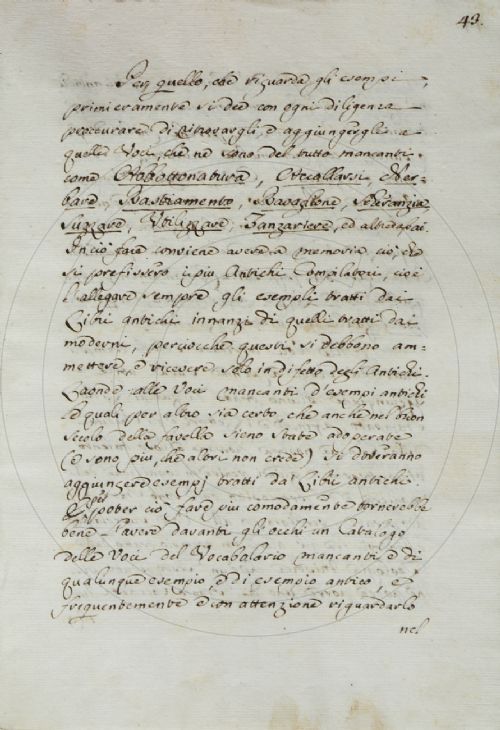 43.
Per quello, che riguarda gli esempi,
primieramente si dee con ogni diligenza
proccurare di ritrovargli, e aggiungergli a
quelle Voci, che ne sono del tutto mancanti
come
bare, Bastiamento,
Suzzare, Utilizzare, Zanzariere, ed altre a pai.
In ciò fare conviene avere a memoria ciò, che
si prefissero i più Antichi Compilatori, cioè
l'allegare sempre gli esempli tratti dai
Libri antichi innanzi di quelli tratti dai
moderni, perciocchè questi si debbono am=
mettere, e ricevere solo in difetto degli Antichi.
Laonde alle Voci mancanti d'esempi antichi
le quali per altro sia certo, che anche nel buon
secolo della favella sieno state adoperate
(e sono più, che altri non crede) si dovranno
aggiungere esempj tratti da' Libri antichi.
E per poter ciò fare più comodamente tornerebbe
bene l'avere davanti gli occhi un Catalogo
delle Voci del Vocabolario mancanti e di
qualunque esempio, e di esempio antico, e
frequentemente e con attenzione riguardarlo
nel